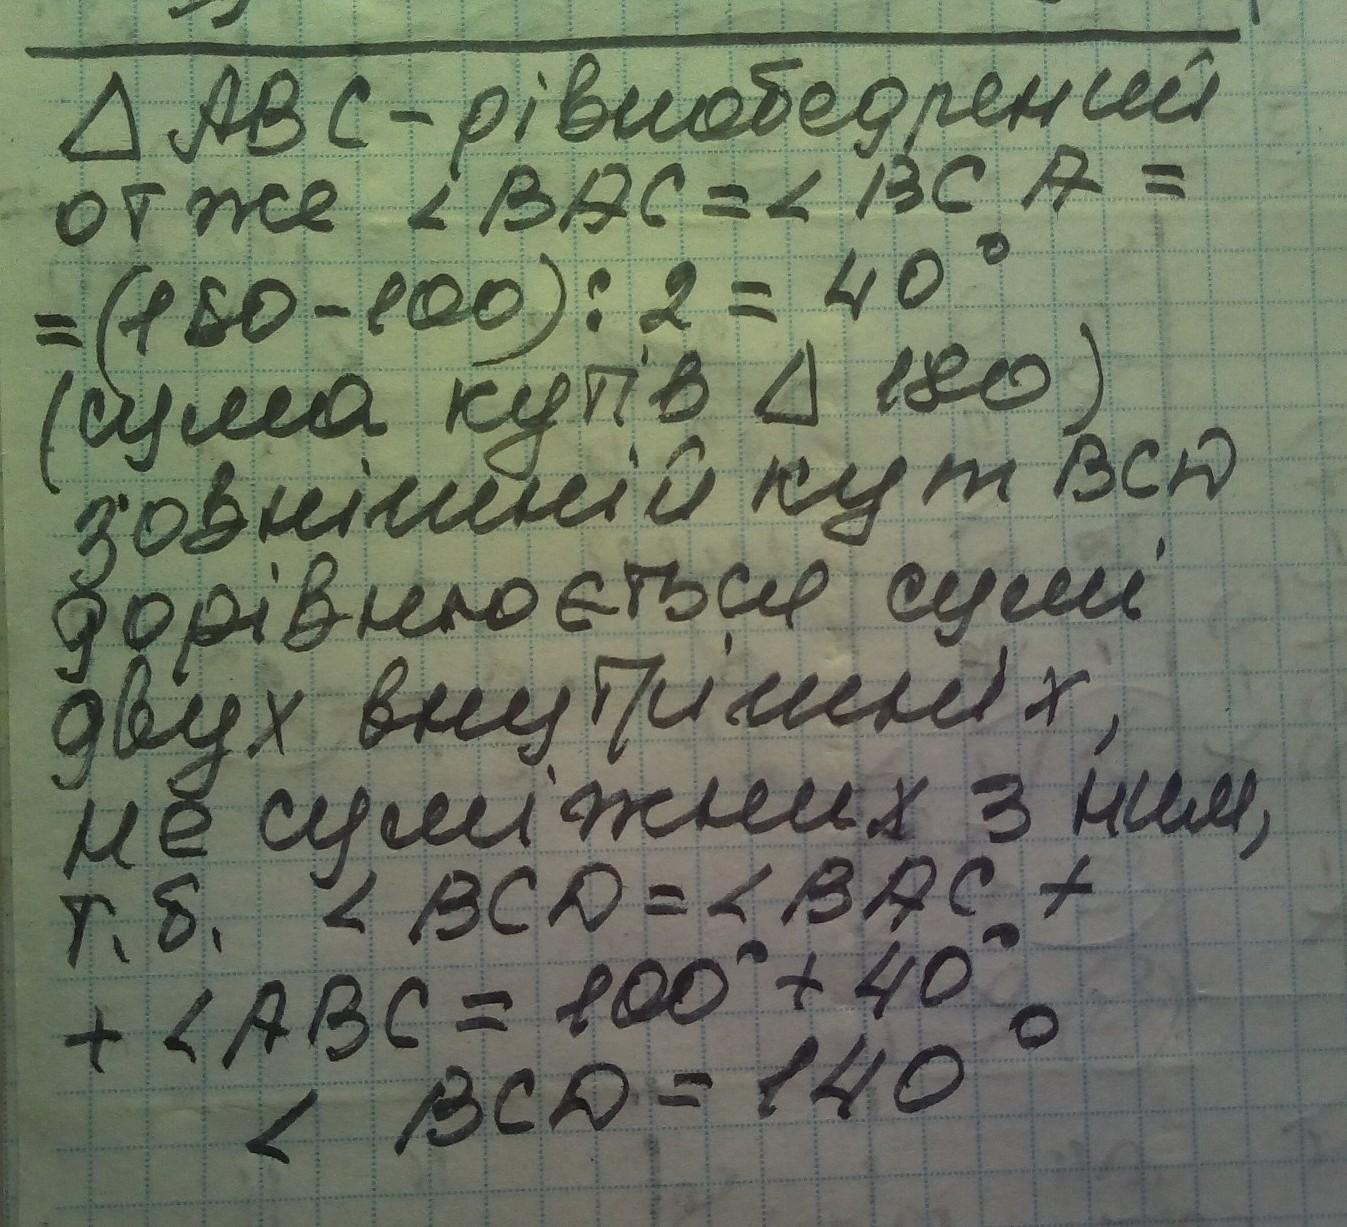 △ ABC - рівнобедрений
отже ∠ BAC = ∠ BCA =
= (180 - 100) : 2 = 40°
(сума кутів △ 180)
зовнішній кут BCD
дорівнюється сумі
двух внутрішніх,
не суміжних з ним,
т.б. ∠ BCD = ∠ BAC +
+ ∠ABC = 100° + 40°
∠ BCD = 140°